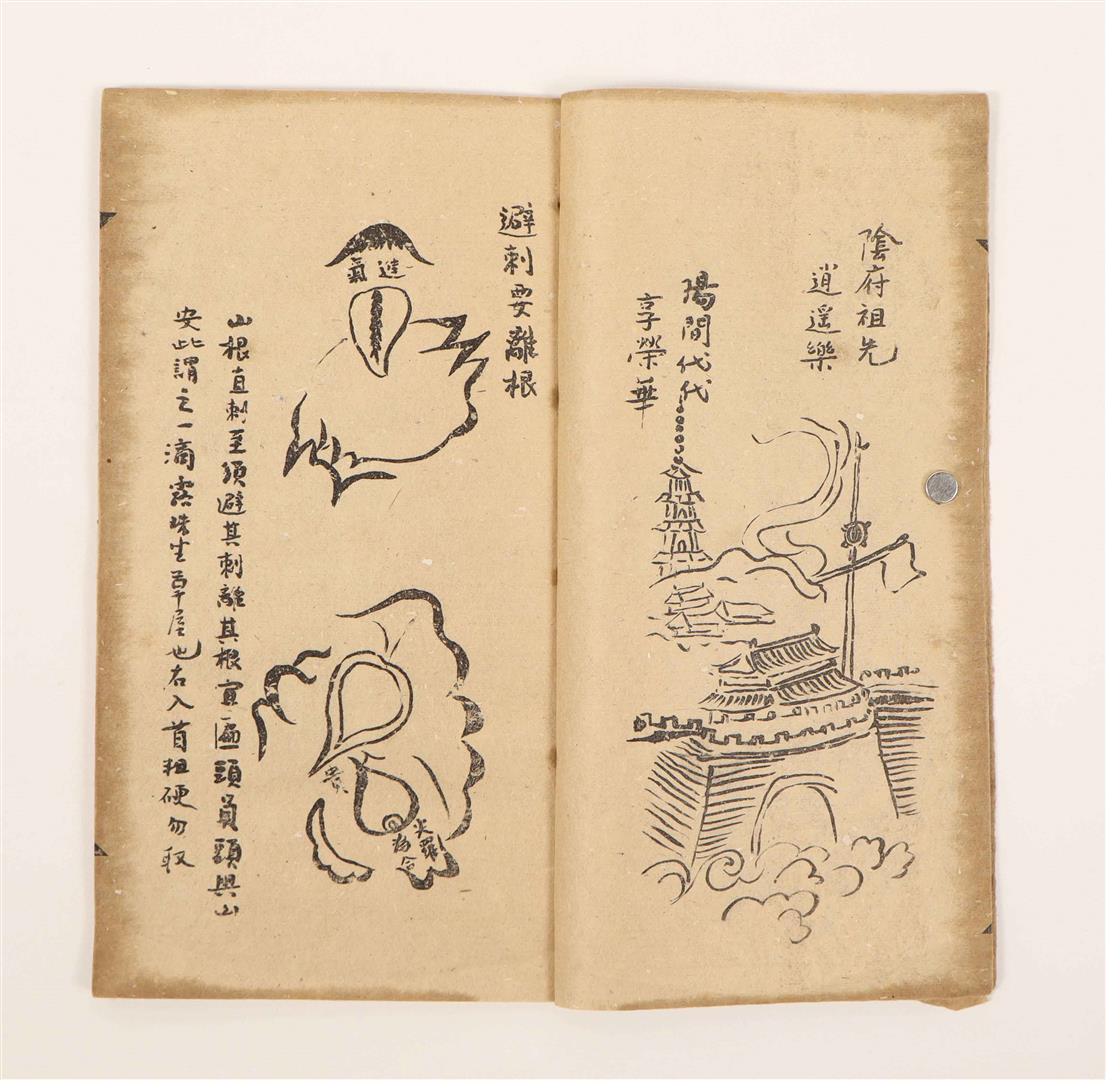 陰府祖先
逍遥樂
陽間代代
享榮華
避刺要離根
進氣
山根直刺至須避其刺離其根宜區頭員頭與山
安此謂之一滴露珠生草屋也右入首粗硬勿取
尖羅
為合